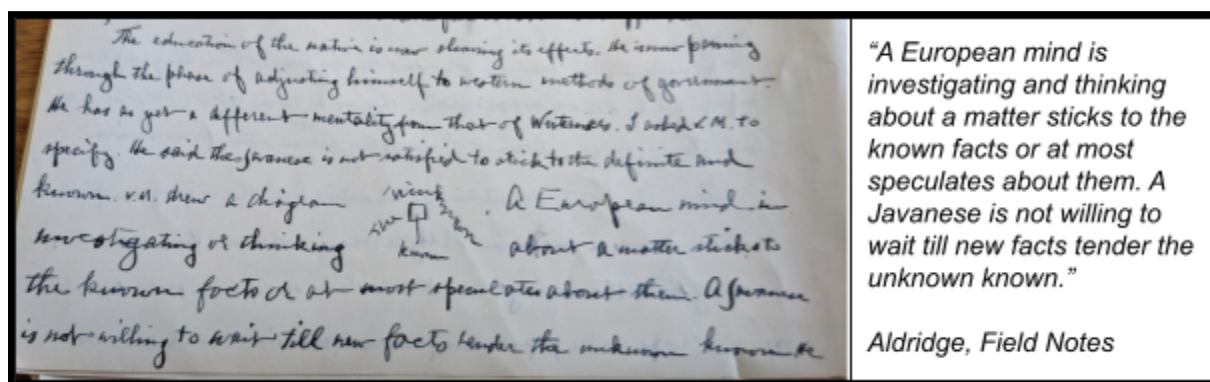 The education of the native is now showing its effects. He is now passing
through the phase of adjusting himself to western methods of government.
He has as yet a different mentality from that of Westerners. I asked v.M. to
specify. He said the Javanese is not satisfied to stick to the definite and
known. v.M. drew a diagram
known
. A European mind in
investigating or thinking
about a matter sticks to
the known facts or at most speculates about them. A Javanese
is not willing to wait till new facts tender the unknown known He
“A European mind is
investigating and thinking
about a matter sticks to the
known facts or at most
speculates about them. A
Javanese is not willing to
wait till new facts tender the
unknown known.”
Aldridge, Field Notes